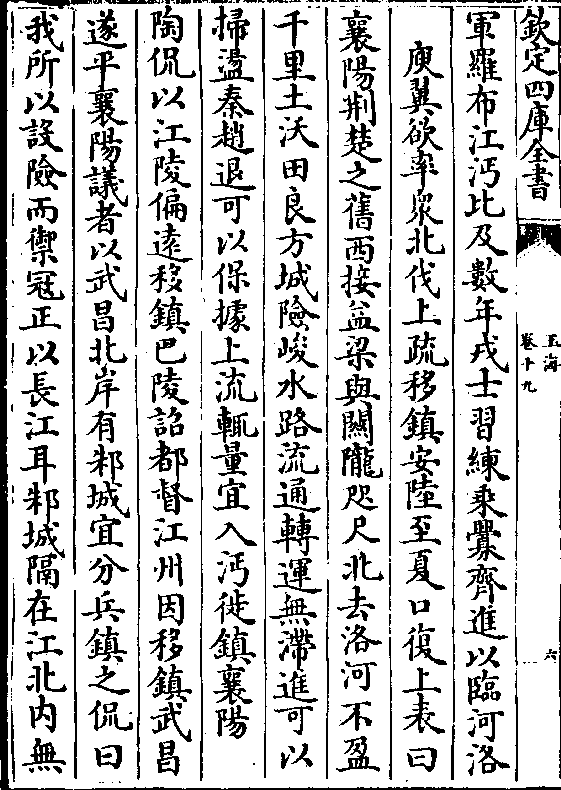 欽定四庫全書
玉海
卷十九
六
軍羅布江沔比及數年戎士習練乘釁齊進以臨河洛
庾翼欲率衆北伐上疏移鎮安陸至夏口復上表曰
襄陽荆楚之舊西接益梁與關隴咫尺北去洛河不盈
千里土沃田良方城險峻水路流通轉運無滯進可以
掃盪秦趙退可以保據上流輒量宜入沔徙鎮襄陽
陶侃以江陵偏逺移鎮巴陵詔都督江州因移鎮武昌
遂平襄陽議者以武昌北岸有邾城宜分兵鎮之侃曰
我所以設險而禦冦正以長江耳邾城隔在江北内無